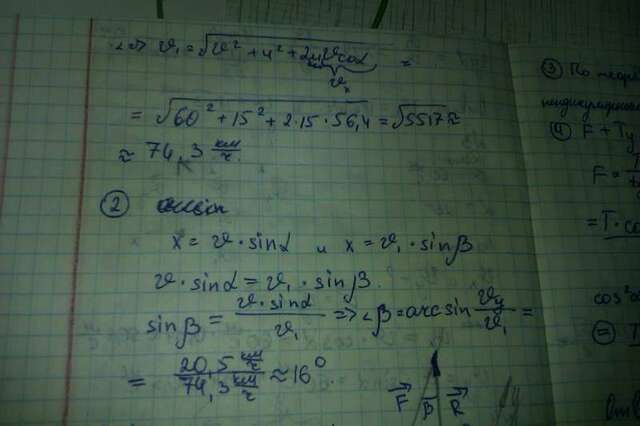 => v₁ = √(v² + u² + 2uv cosα) =
vₓ
= √(60² + 15² + 2·15·56,4) = √5517 ≈
≈ 74,3 км/ч
②
x = v·sinα и x = v₁·sinβ
v·sinα = v₁·sinβ
sinβ = v·sinα / v₁ => ∠β = arcsin v_y / v₁ =
= 20,5 км/ч / 74,3 км/ч ≈ 16°
F β R
③ По
④ F + T_y
F =
= T·co
cos²α
=>